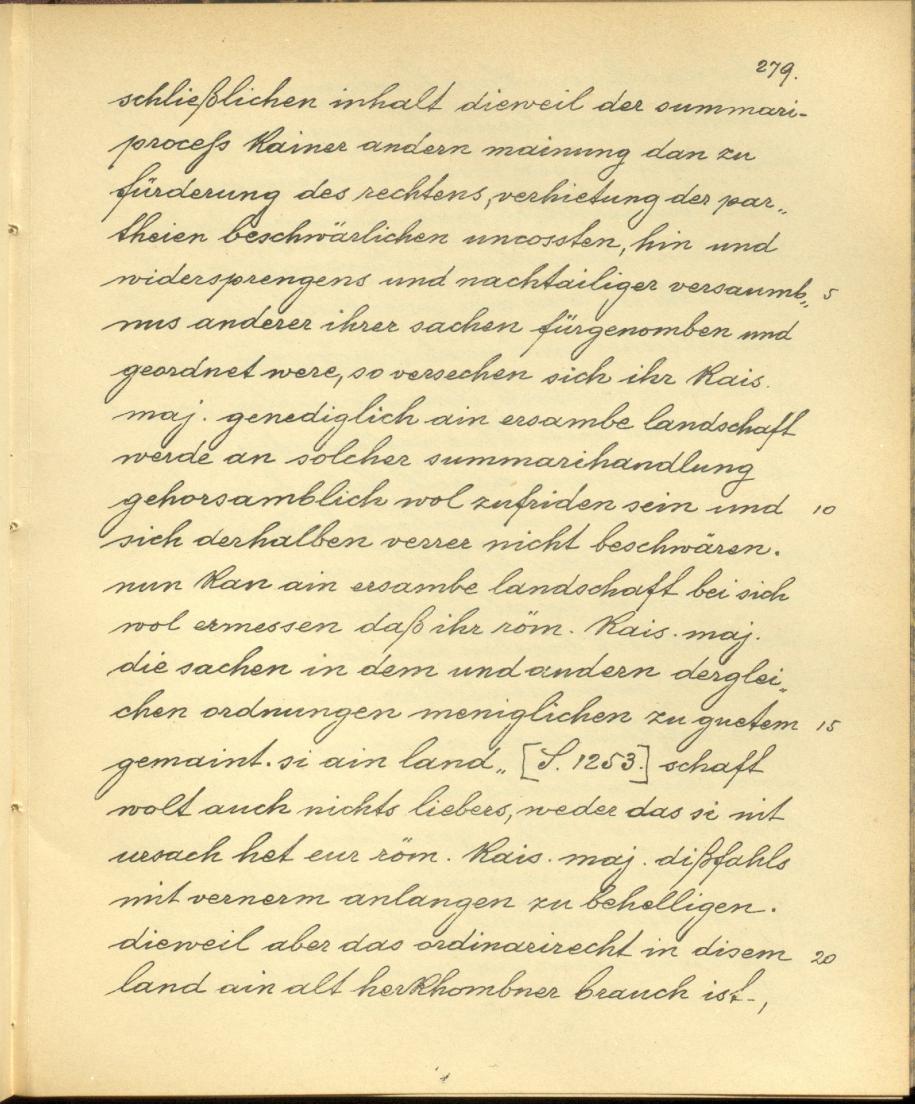 279.
schließlichen inhalt dieweil der summari-
process kainer andern mainung dan zu
fürderung des rechtens, verhietung der par„
theien beschwärlichen uncossten, hin und
widersprengens und nachtailiger versaumb„ 5
nus anderer ihrer sachen fürgenomben und
geordnet were, so versechen sich ihr kais.
maj. genediglich ain ersambe landschaft
werde an solcher summarihandlung
gehorsamblich wol zufriden sein und 10
sich derhalben verrer nicht beschwären.
nun kan ain ersambe landschaft bei sich
wol ermessen daß ihr röm. kais. maj.
die sachen in dem und andern derglei„
chen ordnungen meniglichen zu guetem 15
gemaint. si ain land„ [S. 1253.] schaft
wolt auch nichts liebers, weder das si nit
ursach het eur röm. kais. maj. dißfahls
mit vernerm anlangen zu behelligen.
dieweil aber das ordinarirecht in disem 20
land ain alt herkhombner brauch ist-,